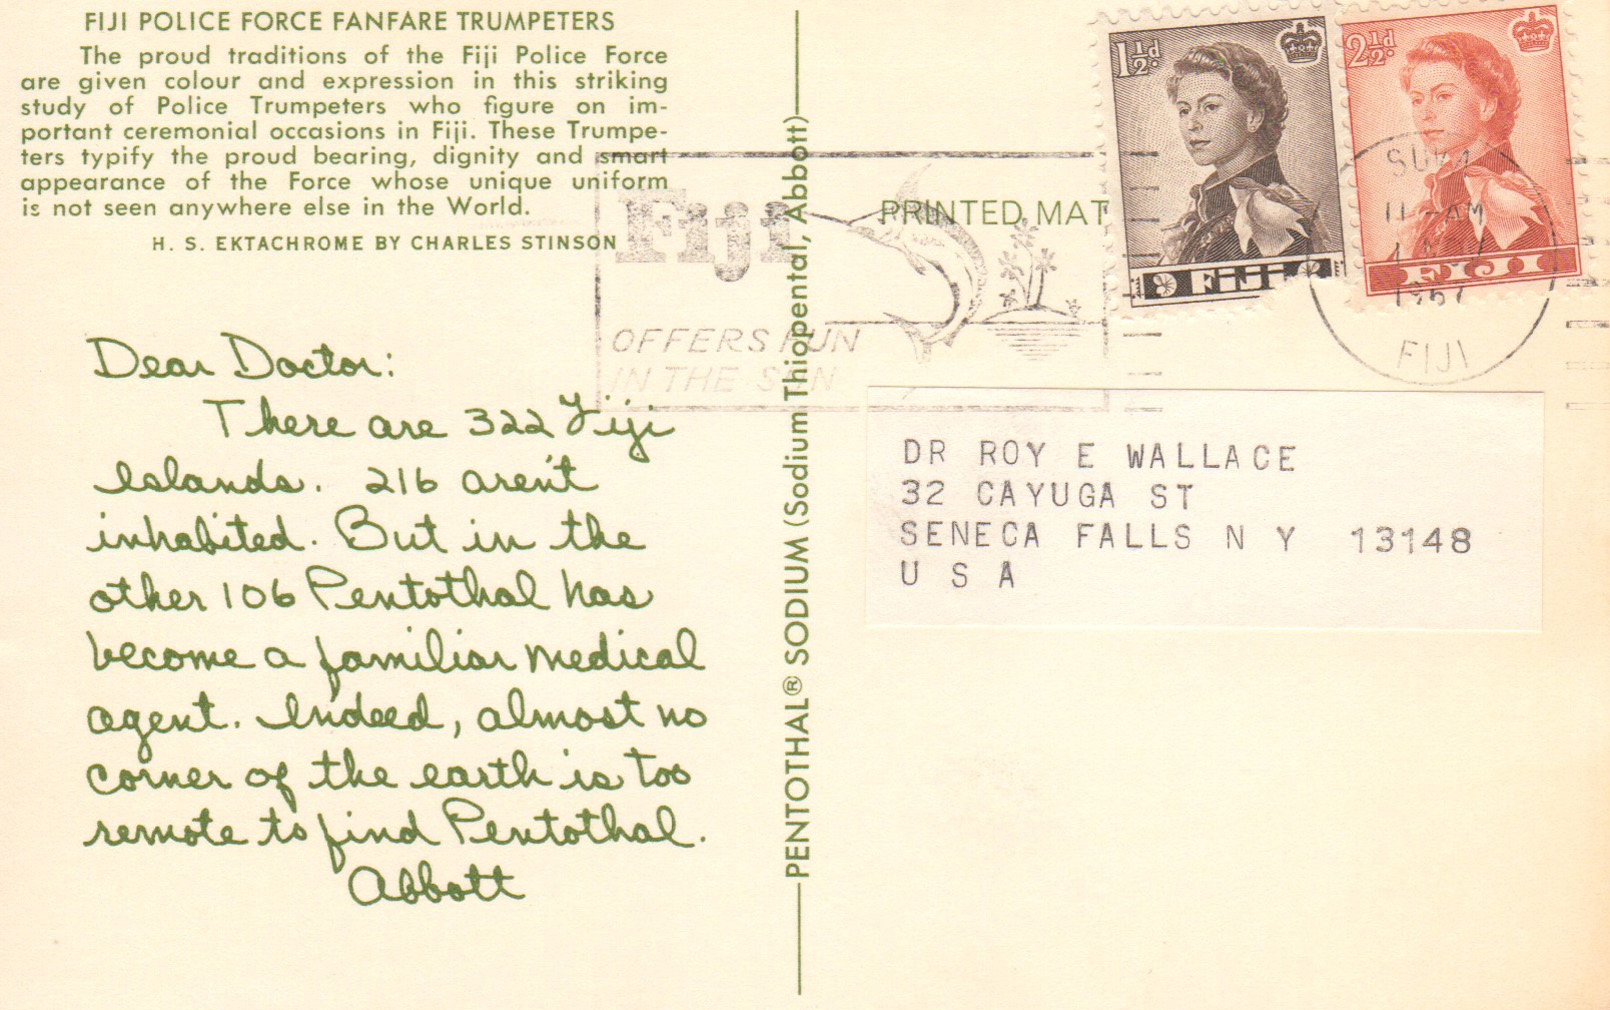 FIJI POLICE FORCE FANFARE TRUMPETERS
The proud traditions of the Fiji Police Force
are given colour and expression in this striking
study of Police Trumpeters who figure on im-
portant ceremonial occasions in Fiji. These Trumpe-
ters typify the proud bearing, dignity and smart
appearance of the Force whose unique uniform
is not seen anywhere else in the World.
H. S. EKTACHROME BY CHARLES STINSON
Dear Doctor:
There are 322 Fiji
Islands. 216 aren't
inhabited. But in the
other 106 Pentothal has
become a familiar medical
agent. Indeed, almost no
corner of the earth is too
remote to find Pentothal.
Abbott
PENTOTHAL® SODIUM (Sodium Thiopental, Abbott)
Fiji
OFFERS FUN
IN THE SUN
PRINTED MAT
1½d
FIJI
2½d
FIJI
SUVA
11 - AM
1967
FIJI
DR ROY E WALLACE
32 CAYUGA ST
SENECA FALLS N Y 13148
U S A